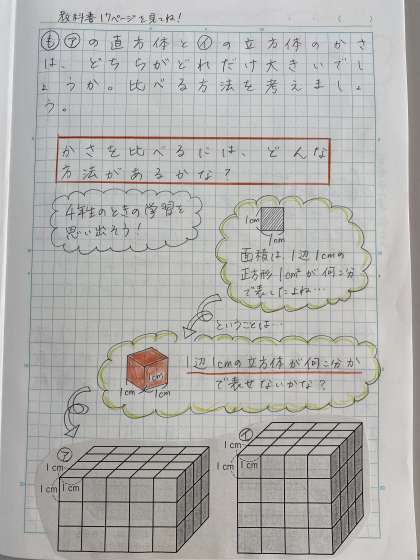 教科書17ページを見てね!
( )
も ㋐の直方体と㋑の立方体のかさ
は、どちらがどれだけ大きいでし
ょうか。比べる方法を考えましょ
う。
かさを比べるには、どんな
方法があるかな?
4年生のときの学習を
思い出そう!
1cm
1cm
面積は、1辺1cmの
正方形1cm²が何こ分
で表してたよね…
ということは…
1cm
1cm
1cm
1辺1cmの立方体が何こ分か
で表せないかな?
㋐
1cm
1cm
1cm
㋑
1cm
1cm
1cm